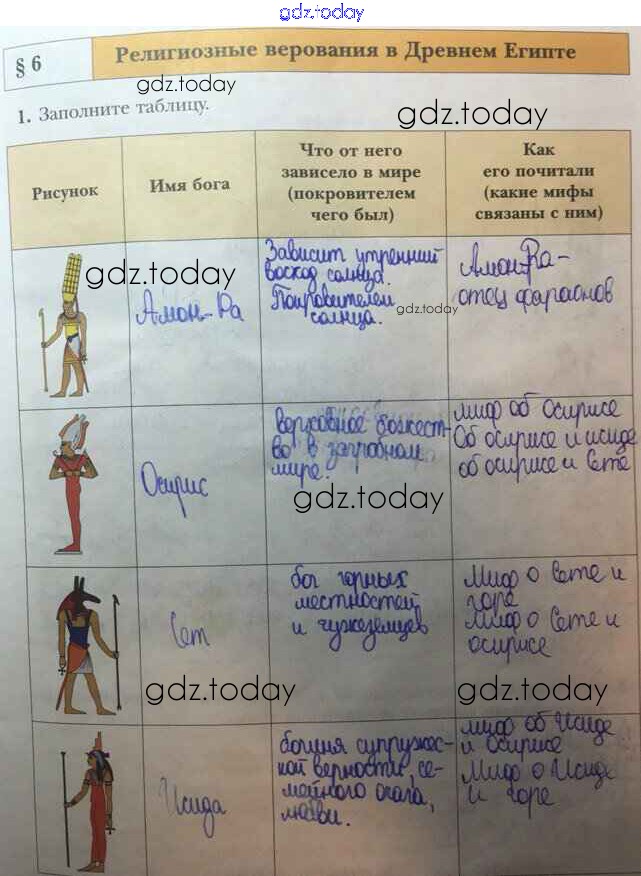 gdz.today
§ 6
Религиозные верования в Древнем Египте
gdz.today
1. Заполните таблицу.
gdz.today
Рисунок
Имя бога
Что от него
зависело в мире
(покровителем
чего был)
Как
его почитали
(какие мифы
связаны с ним)
gdz.today
Амон-Ра
Зависит утренний
восход солнца.
Покровителем
солнца.
Амон-Ра -
отец фараонов
gdz.today
Осирис
верховное божест-
во в загробном
мире.
gdz.today
миф об осирисе
Об осирисе и исиде
об осирисе и Сете
Сет
бог горных
местностей
и чужеземцев
Миф о Сете и
горе
Миф о Сете и
осирисе
gdz.today
gdz.today
Исида
богиня супружес-
кой верности, се-
мейного очага,
любви.
миф об Исиде
и Осирисе
Миф о Исиде
и горе